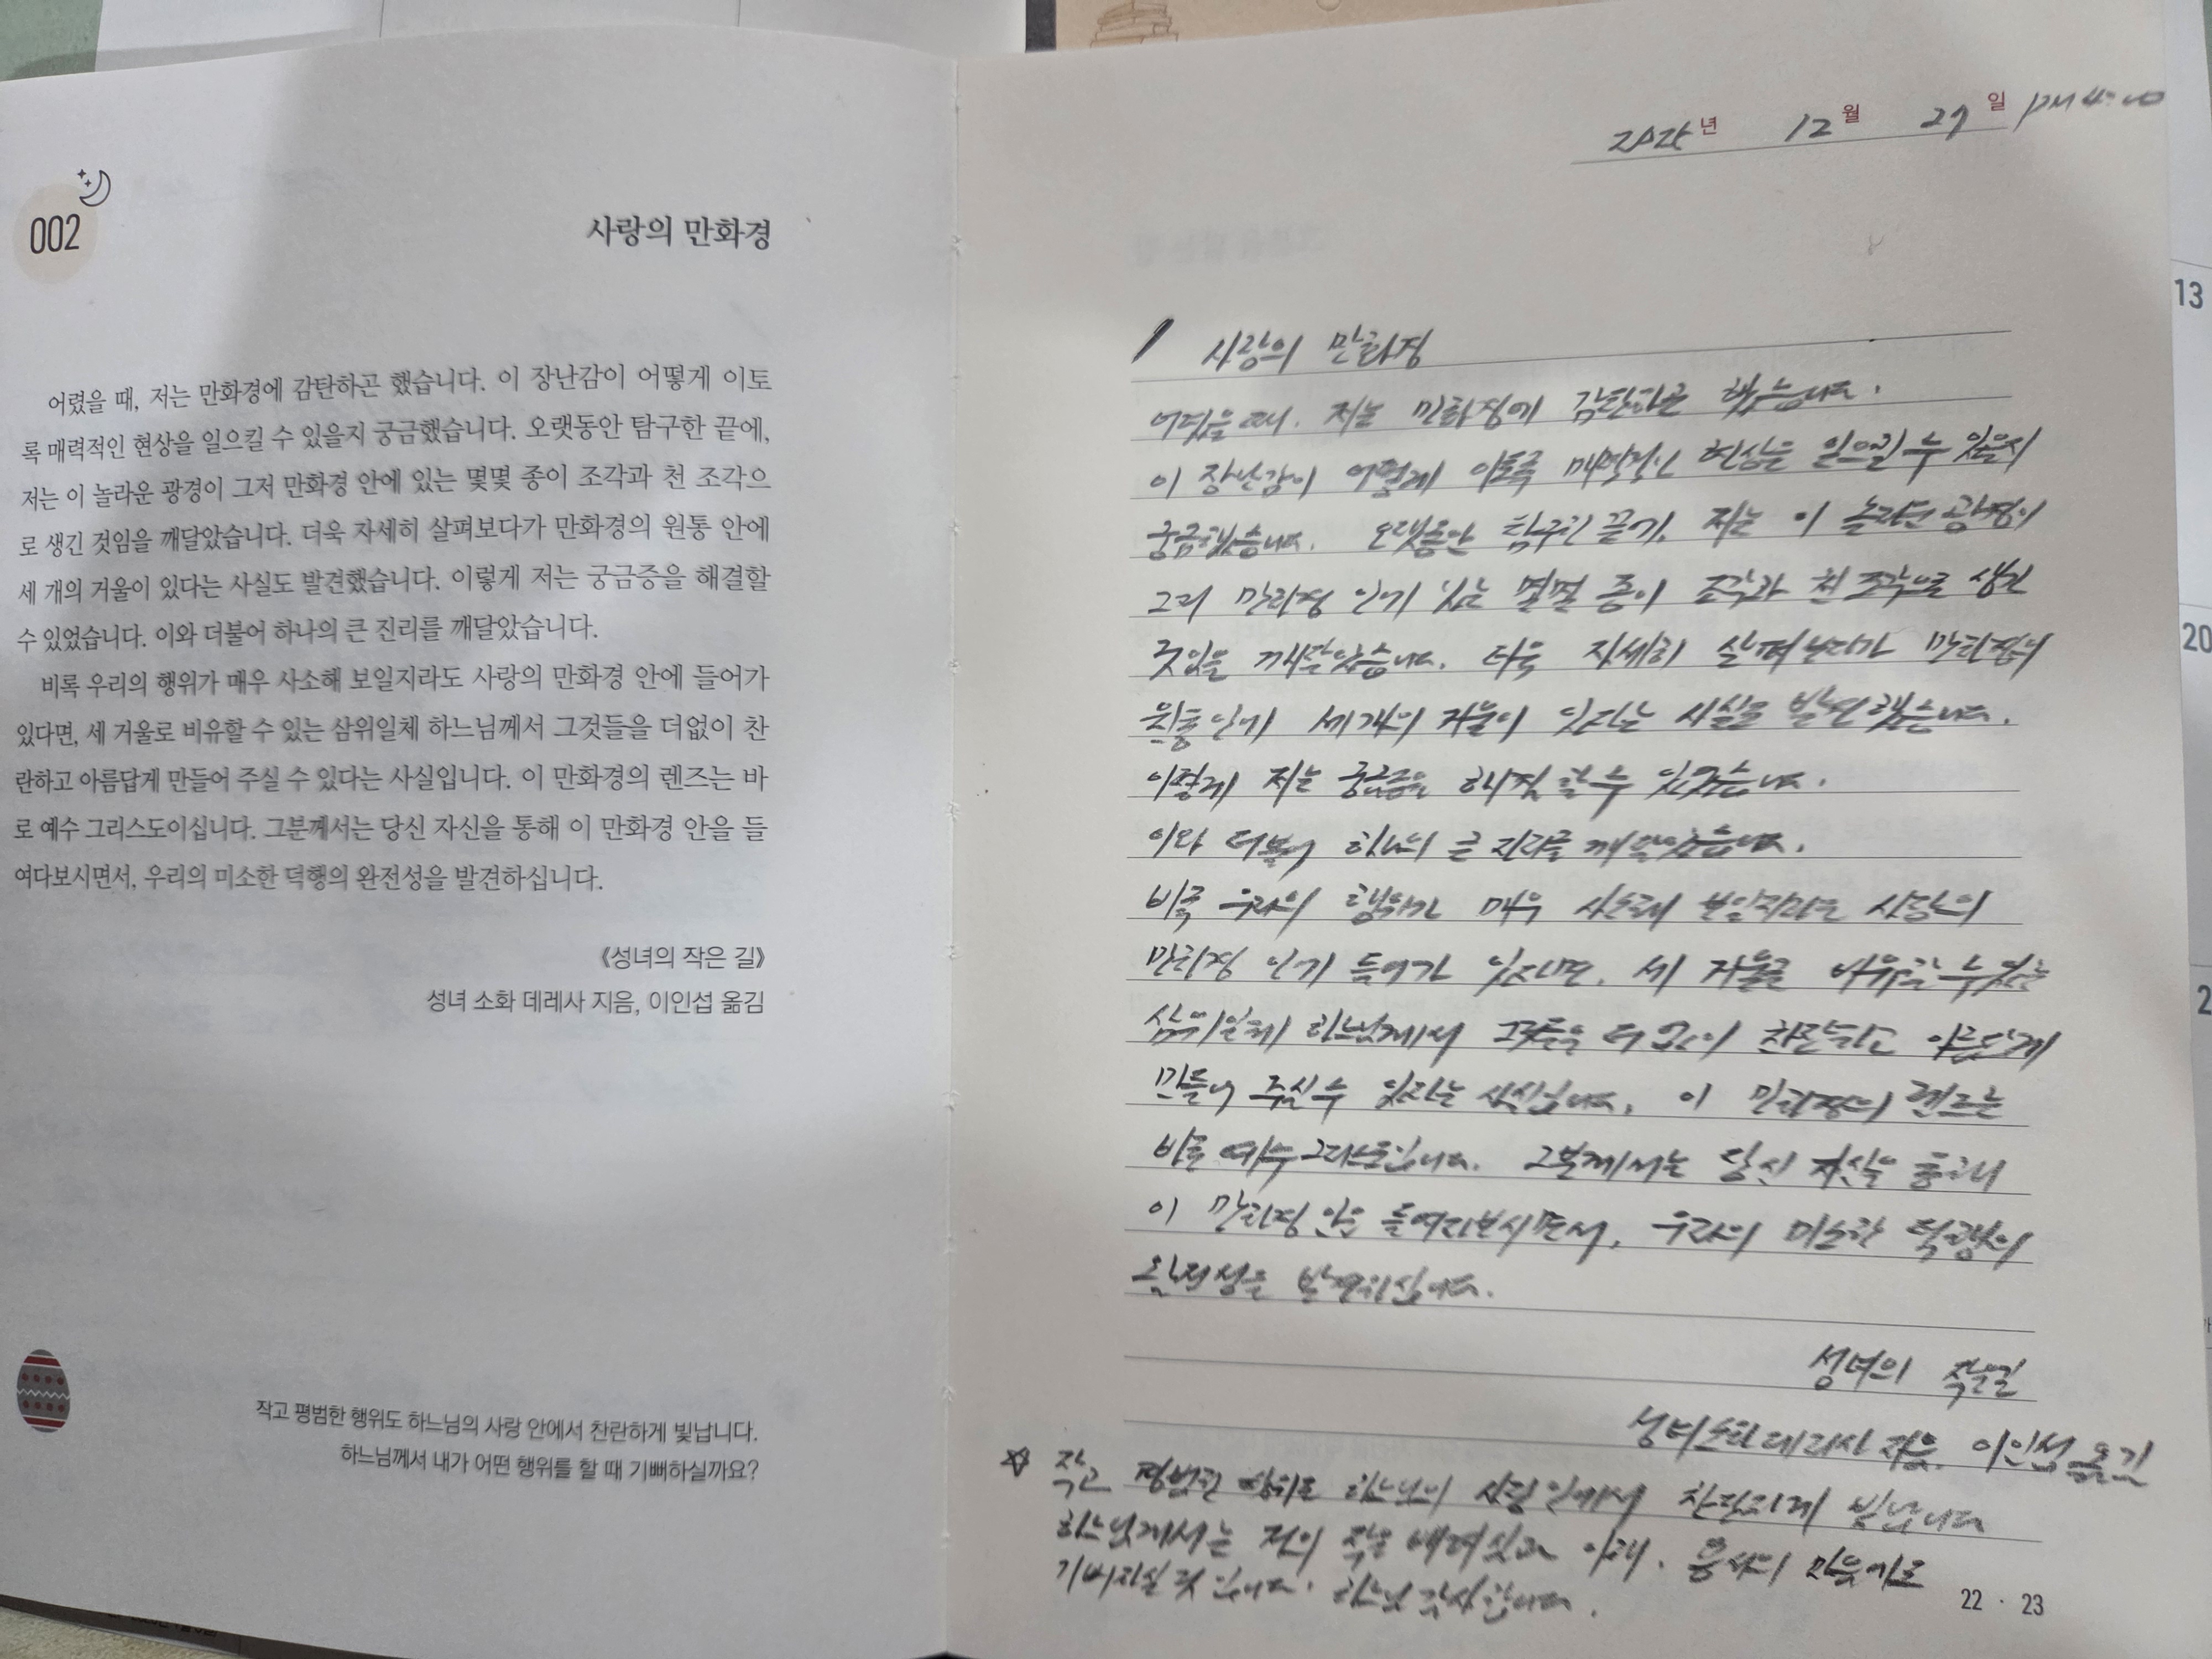 002
사랑의 만화경
어렸을 때, 저는 만화경에 감탄하곤 했습니다. 이 장난감이 어떻게 이토
록 매력적인 현상을 일으킬 수 있을지 궁금했습니다. 오랫동안 탐구한 끝에,
저는 이 놀라운 광경이 그저 만화경 안에 있는 몇몇 종이 조각과 천 조각으
로 생긴 것임을 깨달았습니다. 더욱 자세히 살펴보다가 만화경의 원통 안에
세 개의 거울이 있다는 사실도 발견했습니다. 이렇게 저는 궁금증을 해결할
수 있었습니다. 이와 더불어 하나의 큰 진리를 깨달았습니다.
비록 우리의 행위가 매우 사소해 보일지라도 사랑의 만화경 안에 들어가
있다면, 세 거울로 비유할 수 있는 삼위일체 하느님께서 그것들을 더없이 찬
란하고 아름답게 만들어 주실 수 있다는 사실입니다. 이 만화경의 렌즈는 바
로 예수 그리스도이십니다. 그분께서는 당신 자신을 통해 이 만화경 안을 들
여다보시면서, 우리의 미소한 덕행의 완전성을 발견하십니다.
《성녀의 작은 길》
성녀 소화 데레사 지음, 이인섭 옮김
작고 평범한 행위도 하느님의 사랑 안에서 찬란하게 빛납니다.
하느님께서 내가 어떤 행위를 할 때 기뻐하실까요?
년 12월 27일 PM 4:00
사랑의 만화경
어렸을 때. 저는 만화경에 감탄하곤 했습니다.
이 장난감이 어떻게 이토록 매력적인 현상을 일으킬 수 있을지
궁금했습니다. 오랫동안 탐구한 끝에. 저는 이 놀라운 광경이
그저 만화경 안에 있는 몇몇 종이 조각과 천 조각으로 생긴
것임을 깨달았습니다. 더욱 자세히 살펴보다가 만화경의
원통안에 세개의 거울이 있다는 사실을 발견했습니다.
이렇게 저는 궁금증을 해결할 수 있었습니다.
이와 더불어 하나의 큰 진리를 깨달았습니다.
비록 우리의 행위가 매우 사소해 보일지라도 사랑의
만화경 안에 들어가 있다면. 세 거울로 비유할 수 있는
삼위일체 하느님께서 그것들을 더 없이 찬란하고 아름답게
만들어 주실 수 있다는 사실입니다. 이 만화경의 렌즈는
바로 예수 그리스도입니다. 그분께서는 당신 자신을 통해
이 만화경 안을 들여다보시면서, 우리의 미소한 덕행의
완전성을 발견하십니다.
성녀의 작은길
성녀소화 데레사 지음. 이인섭 옮김
☆ 작고 평범한 행위도 하느님의 사랑 안에서 찬란하게 빛납니다
하느님께서는 저의 작은 배려 봉사의 마음에도
기뻐하실 것입니다. 하느님 감사합니다.
22 · 23
13
20
2